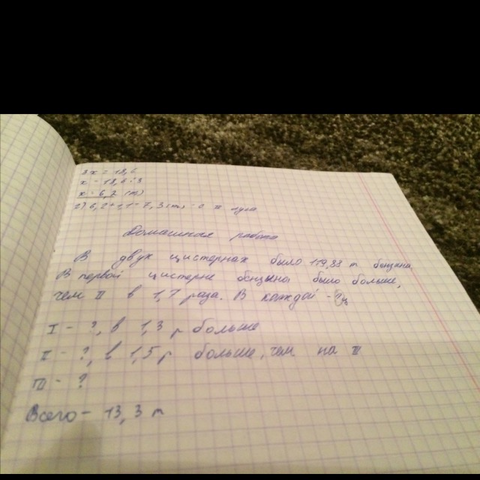 3x = 18,6
x = 18,6:3
x = 6,2 (т)
2) 6,2+1,1=7,3 (т) - с II луга
Домашняя работа
В двух цистернах было 119,88 т бензина.
В первой цистерне бензина было больше,
чем II в 1,7 раза. В каждой - ?
I - ?, в 1,3 р больше
II - ?, в 1,5 р больше, чем на III
III - ?
Всего - 13,3 т